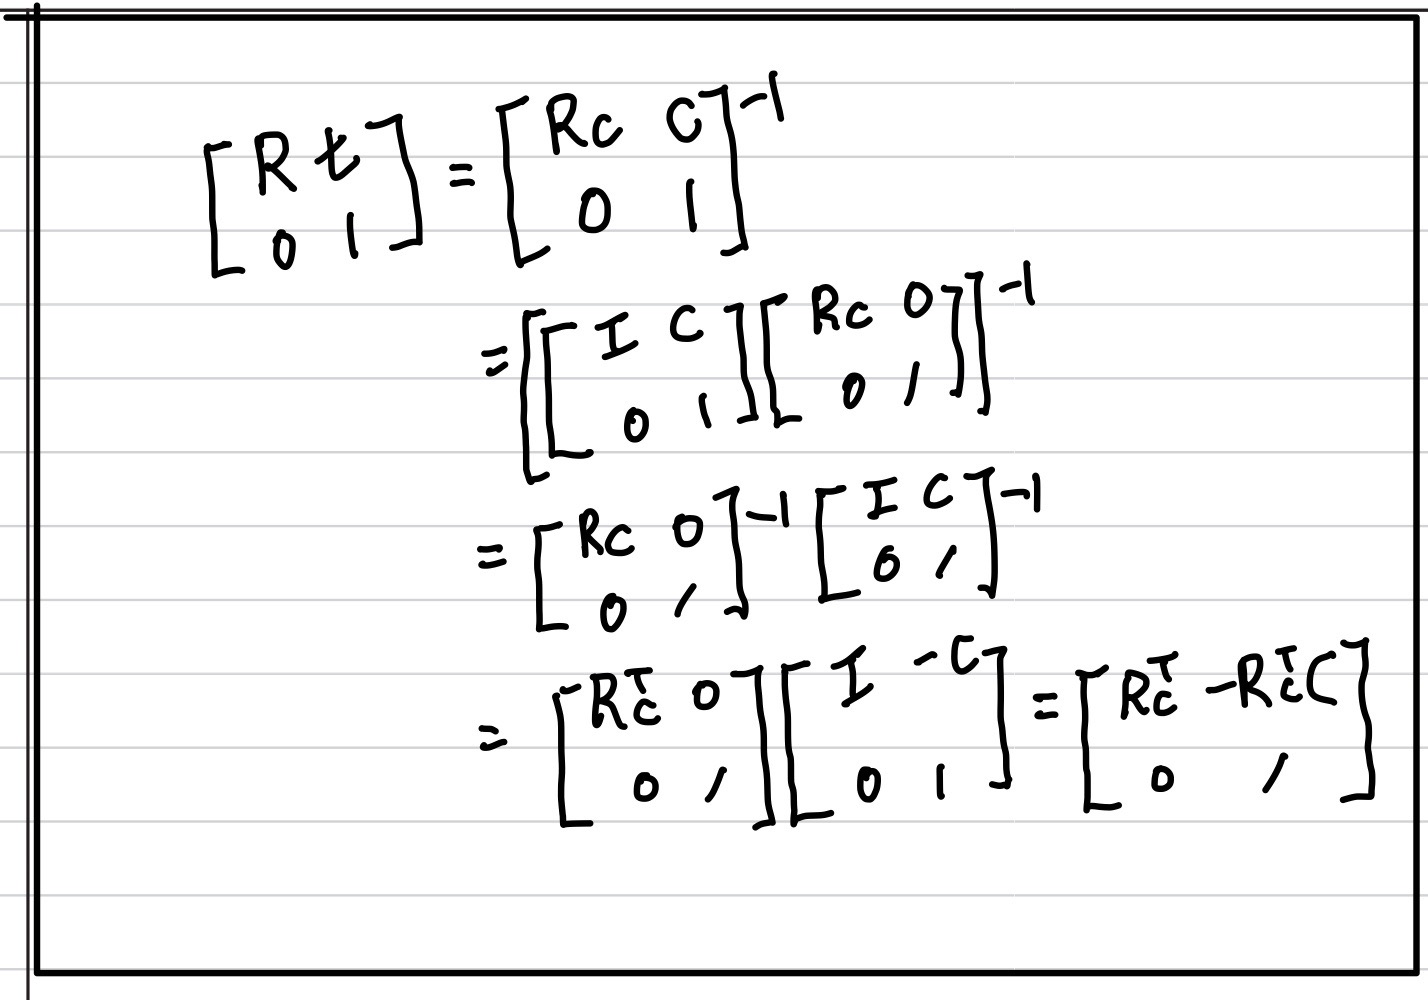 [R t; 0 1] = [Rc C; 0 1]^-1
= [[I C; 0 1][Rc 0; 0 1]]^-1
= [Rc 0; 0 1]^-1 [I C; 0 1]^-1
= [Rc^T 0; 0 1][I -C; 0 1] = [Rc^T -Rc^T C; 0 1]